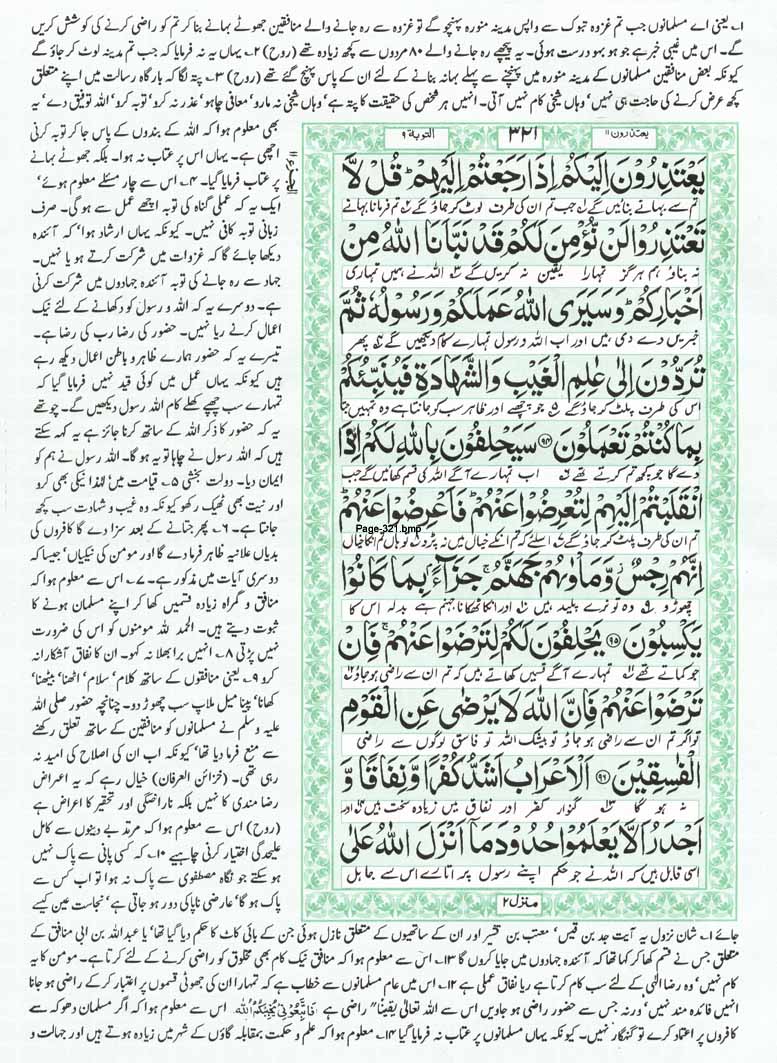 ۱۔ یعنی اے مسلمانوں جب تم غزوہ تبوک سے واپس مدینہ منورہ پہنچو گے تو غزوہ سے رہ جانے والے منافقین جھوٹے بہانے بنا کر تم کو راضی کرنے کی کوشش کریں
گے۔ اس میں غیبی خبر ہے جو ہو بہو درست ہوئی۔ یہ پیچھے رہ جانے والے ۸۰ مردوں سے کچھ زیادہ تھے (روح) ۲۔ یہاں یہ نہ فرمایا کہ جب تم مدینہ لوٹ کر جاؤ گے
کیونکہ بعض منافقین مسلمانوں کے مدینہ منورہ میں پہنچنے سے پہلے بہانہ بنانے کے لئے ان کے پاس پہنچ گئے تھے (روح) ۳۔ پتہ لگا کہ بارگاہ رسالت میں اپنے متعلق
کچھ عرض کرنے کی حاجت ہی نہیں' وہاں شیخی کام نہیں آتی۔ انہیں ہر شخص کی حقیقت کا پتہ ہے' وہاں شیخی نہ مارو' معافی چاہو' عذر نہ کرو' توبہ کرو' اللہ توفیق دے' یہ
بھی معلوم ہوا کہ اللہ کے بندوں کے پاس جا کر توبہ کرنی
اچھی ہے۔ یہاں اس پر عتاب نہ ہوا۔ بلکہ جھوٹے بہانے
پر عتاب فرمایا گیا۔ ۴۔ اس سے چار مسئلے معلوم ہوئے'
ایک یہ کہ عملی گناہ کی توبہ اچھے عمل سے ہو گی۔ صرف
زبانی توبہ کافی نہیں۔ کیونکہ یہاں ارشاد ہوا' کہ آئندہ
دیکھا جائے گا کہ غزوات میں شرکت کرتے ہو یا نہیں۔
جہاد سے رہ جانے کی توبہ آئندہ جہادوں میں جانا، شرکت کرنی
ہے۔ دوسرے یہ کہ اللہ و رسول کو دکھانے کے لئے نیک
اعمال کرنے ریا نہیں۔ حضور کی رضا رب کی رضا ہے۔
تیسرے یہ کہ حضور ہمارے ظاہر و باطن اعمال دیکھ رہے
ہیں کیونکہ یہاں عمل میں کوئی قید نہیں فرمایا گیا کہ
تمہارے سب چھپے کھلے کام اللہ رسول دیکھیں گے۔ چوتھے
یہ کہ حضور کا ذکر اللہ کے ساتھ کرنا جائز ہے یہ کہہ سکتے
ہیں کہ اللہ رسول نے چاہا تو یہ ہو گا۔ اللہ رسول نے ہم کو
ایمان دیا۔ دولت بخشی ۵۔ قیامت میں لہٰذا نیکی بھی کرو
اور نیت بھی ٹھیک رکھو کیونکہ وہ غیب و شہادت سب کچھ
جانتا ہے۔ ۶۔ پھر جتانے کے بعد سزا دے گا کافروں کی
بدیاں علانیہ ظاہر فرما دے گا اور مومن کی نیکیاں' جیسا کہ
دوسری آیات میں مذکور ہے۔ ۷۔ اس سے معلوم ہوا کہ
منافق و گمراہ زیادہ قسمیں کھا کر اپنے مسلمان ہونے کا
ثبوت دیتے ہیں۔ الحمد للہ مومنوں کو اس کی ضرورت
نہیں پڑتی ۸۔ انہیں برا بھلا نہ کہو۔ ان کا نفاق آشکارا نہ
کرو ۹۔ یعنی منافقوں کے ساتھ کلام' سلام' اٹھنا' بیٹھنا'
کھانا' پینا میل ملاپ سب چھوڑ دو۔ چنانچہ حضور صلی اللہ
علیہ وسلم نے مسلمانوں کو منافقین کے ساتھ تعلق رکھنے
سے منع فرما دیا تھا' کیونکہ اب ان کی اصلاح کی امید نہ
رہی تھی۔ (خزائن العرفان) خیال رہے کہ یہ اعراض
رضا مندی کا نہیں بلکہ ناراضگی اور تحقیر کا اعراض ہے
(روح) اس سے معلوم ہوا کہ مرتد بے دینوں سے کامل
علیحدگی اختیار کرنی چاہیے ۱۰۔ کہ کسی پانی سے پاک نہیں
ہو سکتے جو نگاہ مصطفوی سے پاک نہ ہوا تو اب کس سے
پاک ہو گا' عارضی ناپاکی دور ہو جاتی ہے' نجاست عین کیسے
یعتذرون ۱۱
۳۲۱
التوبة ۹
يَعْتَذِرُونَ اِلَيْكُمْ اِذَا رَجَعْتُمْ اِلَيْهِمْ ؕ قُلْ لَّا
تم سے بہانے بنائیں گے جب تم ان کی طرف لوٹ کر جاؤ گے تم فرمانا بہانے
تَعْتَذِرُوْا لَنْ نُّؤْمِنَ لَكُمْ قَدْ نَبَّاَنَا اللّٰهُ مِنْ
نہ بناؤ ہم ہرگز تمہارا یقین نہ کریں گے اللہ نے ہمیں تمہاری
اَخْبَارِكُمْ ؕ وَسَيَرَى اللّٰهُ عَمَلَكُمْ وَرَسُوْلُهٗ ثُمَّ
خبریں دے دی ہیں اور اب اللہ و رسول تمہارے کام دیکھیں گے پھر
تُرَدُّوْنَ اِلٰى عٰلِمِ الْغَيْبِ وَالشَّهَادَةِ فَيُنَبِّئُكُمْ
اس کی طرف پلٹ کر جاؤ گے جو چھپے اور ظاہر سب کو جانتا ہے وہ تمہیں جتا
بِمَا كُنْتُمْ تَعْمَلُوْنَ ﴿۹۴﴾ سَيَحْلِفُوْنَ بِاللّٰهِ لَكُمْ اِذَا
دے گا جو کچھ تم کرتے تھے اب تمہارے آگے اللہ کی قسم کھائیں گے جب
انْقَلَبْتُمْ اِلَيْهِمْ لِتُعْرِضُوْا عَنْهُمْ ؕ فَاَعْرِضُوْا عَنْهُمْ ؕ
Page-321.bmp
تم ان کی طرف پلٹ کر جاؤ گے اسلئے کہ تم انکے خیال میں نہ پڑو تو ہاں تم انکا خیال
اِنَّهُمْ رِجْسٌ ؗ وَّمَاْوٰىهُمْ جَهَنَّمُ ۚ جَزَآءًۢ بِمَا كَانُوْا
چھوڑو وہ تو نرے پلید ہیں اور انکا ٹھکانا جہنم ہے بدلہ اس کا
يَكْسِبُوْنَ ﴿۹۵﴾ يَحْلِفُوْنَ لَكُمْ لِتَرْضَوْا عَنْهُمْ ۚ فَاِنْ
جو کماتے تھے تمہارے آگے قسمیں کھاتے ہیں کہ تم ان سے راضی ہو جاؤ
تَرْضَوْا عَنْهُمْ فَاِنَّ اللّٰهَ لَا يَرْضٰى عَنِ الْقَوْمِ
تو اگر تم ان سے راضی ہو جاؤ تو بیشک اللہ تو فاسق لوگوں سے راضی
الْفٰسِقِيْنَ ﴿۹۶﴾ اَلْاَعْرَابُ اَشَدُّ كُفْرًا وَّنِفَاقًا وَّ
نہ ہو گا گنوار کفر اور نفاق میں زیادہ سخت ہیں اور
اَجْدَرُ اَلَّا يَعْلَمُوْا حُدُوْدَ مَاۤ اَنْزَلَ اللّٰهُ عَلٰى
اسی قابل ہیں کہ اللہ نے جو حکم اپنے رسول پر اتارے اس سے جاہل
منزل ۲
جائے ۱۱۔ شان نزول یہ آیت جد بن قیس' معتب بن قشیر اور ان کے ساتھیوں کے متعلق نازل ہوئی جن کے بائی کاٹ کا حکم دیا گیا تھا' یا عبداللہ بن ابی منافق کے
متعلق جس نے قسم کھا کر کہا تھا کہ آئندہ جہادوں میں جایا کروں گا ۱۲۔ اس سے معلوم ہوا کہ منافق نیک کام بھی مخلوق کو راضی کرنے کے لئے کرتا ہے۔ مومن کا یہ
کام نہیں' وہ رضا الٰہی کے لئے سب کام کرتا ہے ریا نفاق عملی ہے ۱۳۔ اس میں عام مسلمانوں سے خطاب ہے کہ تمہارا ان کی جھوٹی قسموں پر اعتبار کر کے راضی ہو جانا
انہیں فائدہ مند نہیں' ورنہ جس سے حضور راضی ہو جاویں اس سے اللہ تعالیٰ یقیناً راضی ہے فَاتَّبِعُوْنِیْ یُحْبِبْكُمُ اللّٰهُ۔ اس سے معلوم ہوا کہ اگر مسلمان دھوکہ سے
کافروں پر اعتماد کرے تو گنہگار نہیں۔ کیونکہ یہاں مسلمانوں پر عتاب نہ فرمایا گیا ۱۴۔ معلوم ہوا کہ علم و حکمت بمقابلہ گاؤں کے شہر میں زیادہ ہوتے ہیں اور جہالت و